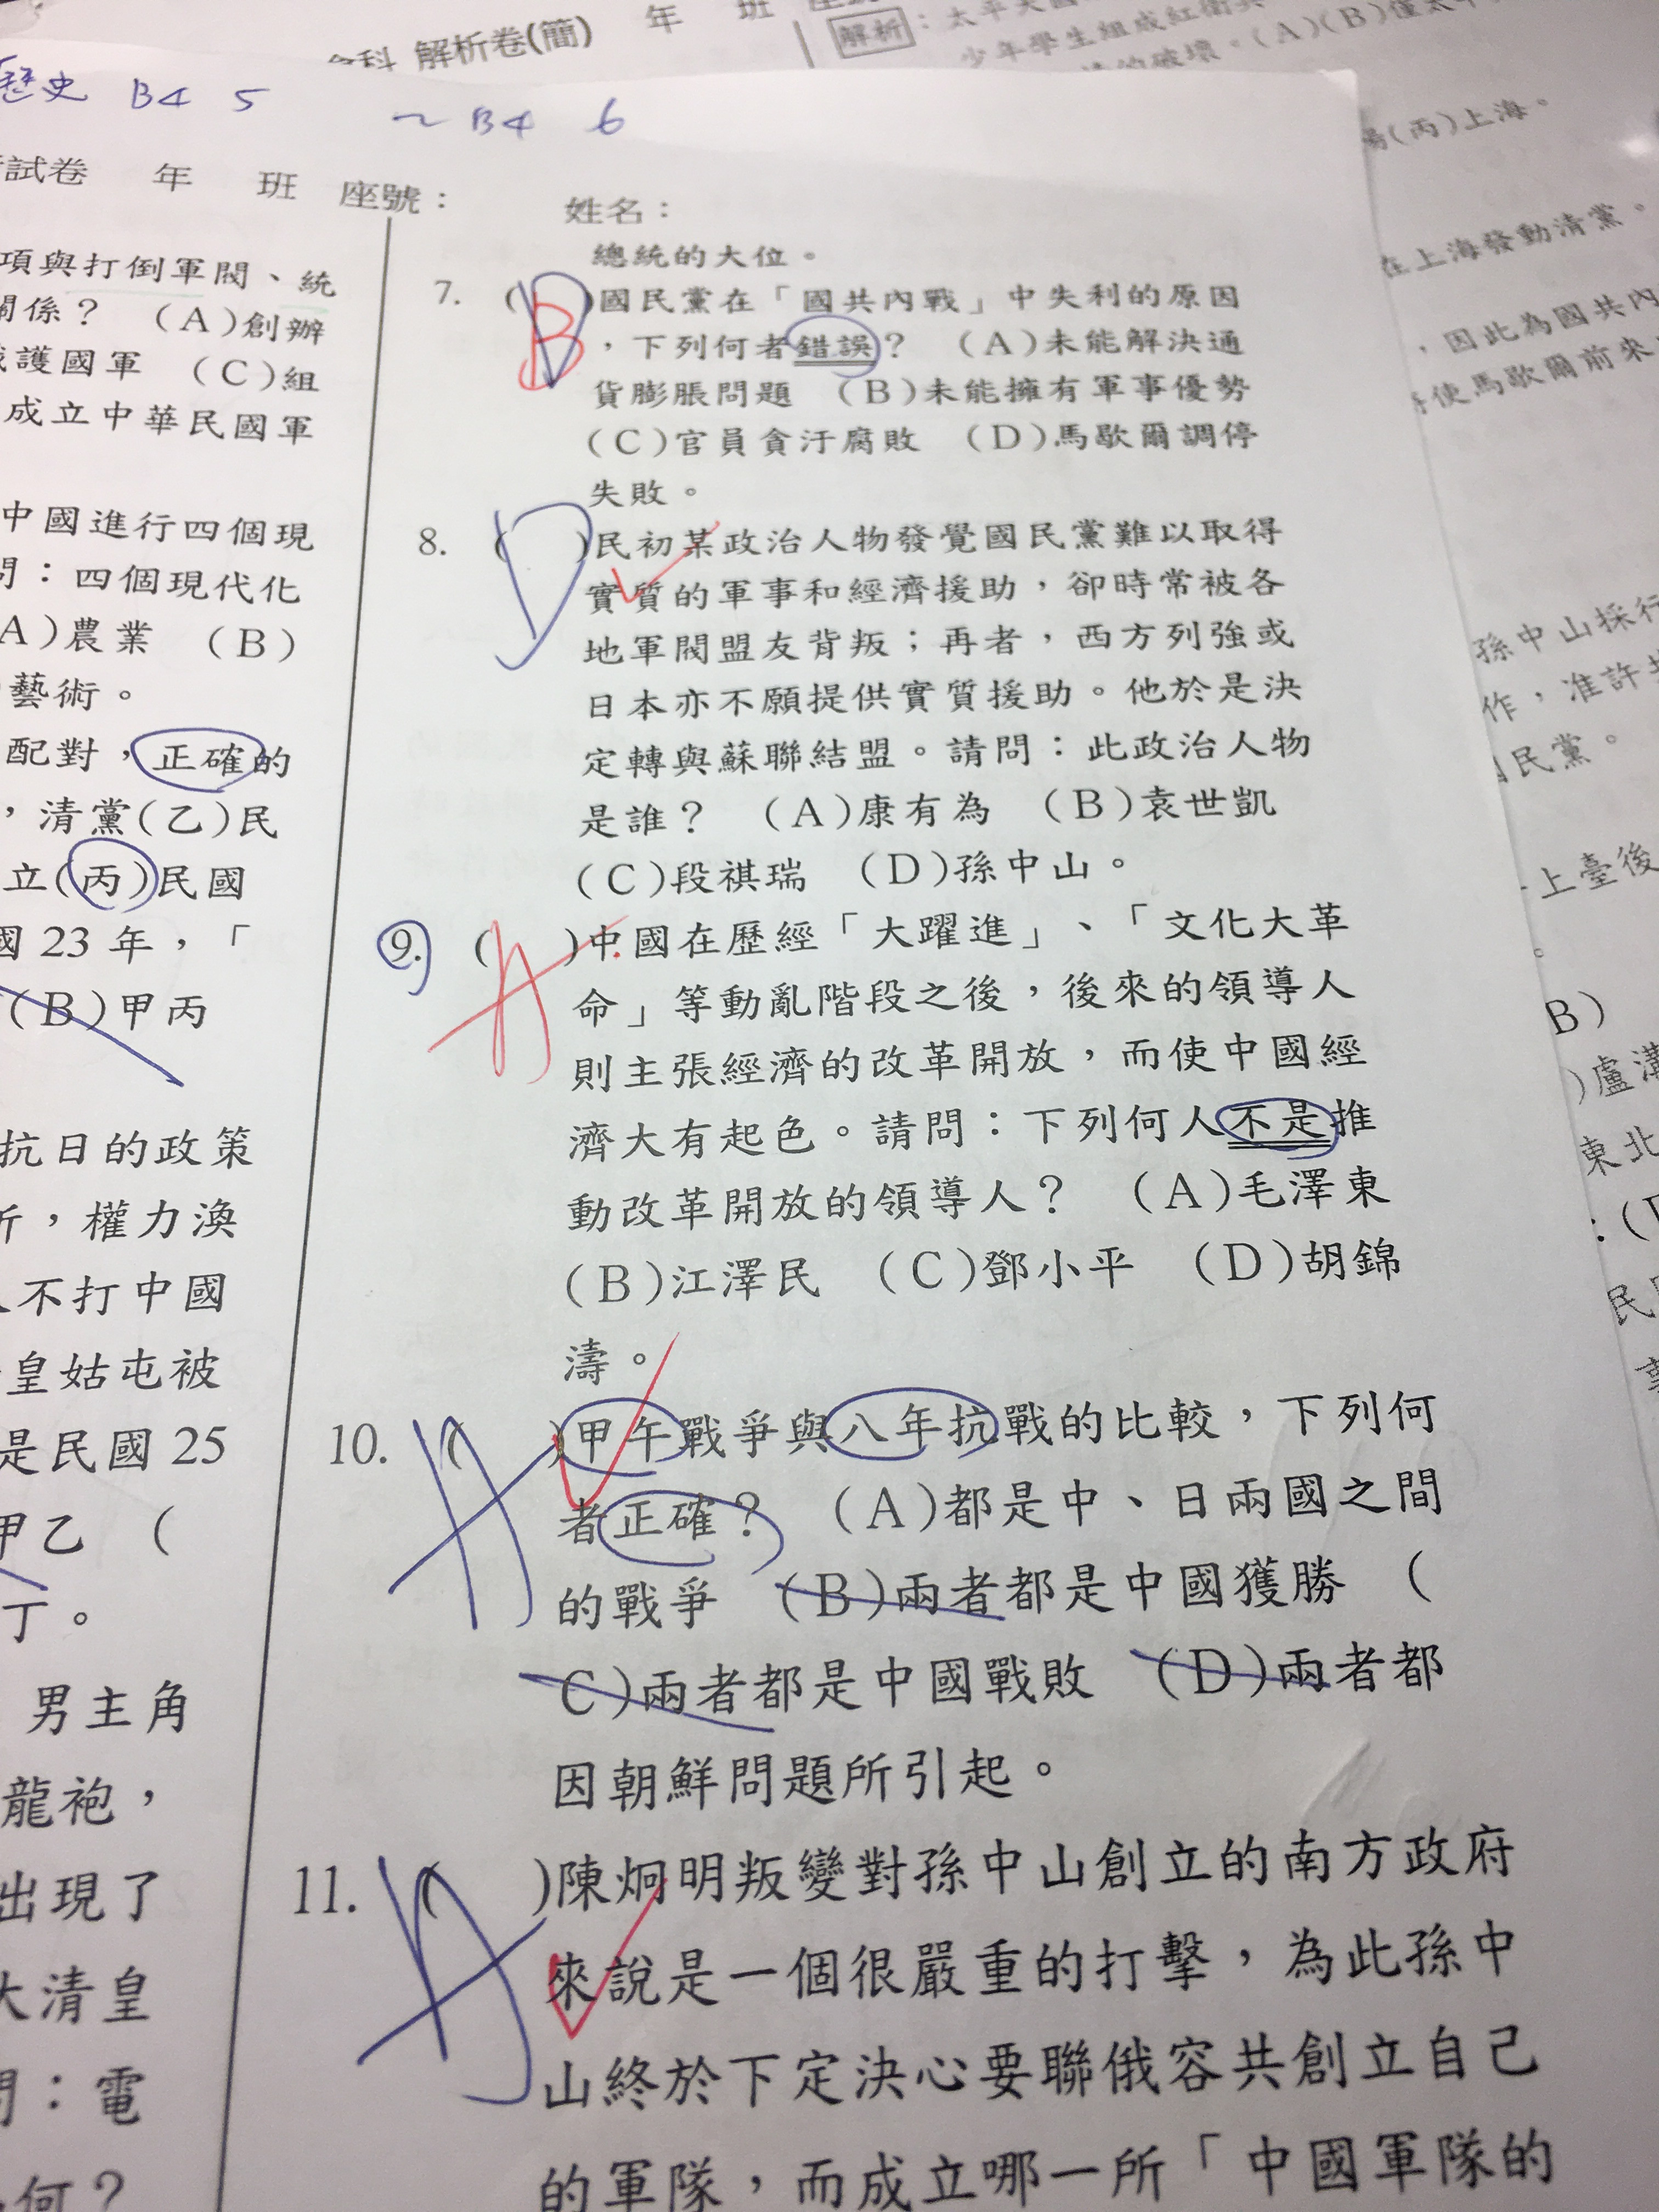 年 班
科 解析卷(簡)
解析：太平天國
少年學生組成紅衛兵
的破壞。(A)(B)僅太平
歷史 B4 5 ~ B4 6
試卷 年 班 座號：
姓名：
項與打倒軍閥、統
關係？ (A)創辦
護國軍 (C)組
成立中華民國軍
中國進行四個現
問：四個現代化
A)農業 (B)
藝術。
配對，正確的
，清黨(乙)民
立(丙)民國
國 23 年，「
(B)甲丙
抗日的政策
，權力渙
人不打中國
皇姑屯被
是民國 25
甲乙 (
丁。
男主角
龍袍，
出現了
大清皇
問：電
何？
總統的大位。
7. ( B )國民黨在「國共內戰」中失利的原因
，下列何者錯誤？ (A)未能解決通
貨膨脹問題 (B)未能擁有軍事優勢
(C)官員貪汙腐敗 (D)馬歇爾調停
失敗。
8. ( D )民初某政治人物發覺國民黨難以取得
實質的軍事和經濟援助，卻時常被各
地軍閥盟友背叛；再者，西方列強或
日本亦不願提供實質援助。他於是決
定轉與蘇聯結盟。請問：此政治人物
是誰？ (A)康有為 (B)袁世凱
(C)段祺瑞 (D)孫中山。
9. ( A )中國在歷經「大躍進」、「文化大革
命」等動亂階段之後，後來的領導人
則主張經濟的改革開放，而使中國經
濟大有起色。請問：下列何人不是推
動改革開放的領導人？ (A)毛澤東
(B)江澤民 (C)鄧小平 (D)胡錦
濤。
10. ( A )甲午戰爭與八年抗戰的比較，下列何
者正確？ (A)都是中、日兩國之間
的戰爭 (B)兩者都是中國獲勝 (
C)兩者都是中國戰敗 (D)兩者都
因朝鮮問題所引起。
11. ( A )陳炯明叛變對孫中山創立的南方政府
來說是一個很嚴重的打擊，為此孫中
山終於下定決心要聯俄容共創立自己
的軍隊，而成立哪一所「中國軍隊的
(丙)上海。
在上海發動清黨。
，因此為國共內
使馬歇爾前來
孫中山採行
作，准許共
民黨。
上臺後
。
B)
)盧溝
東北
：(
民